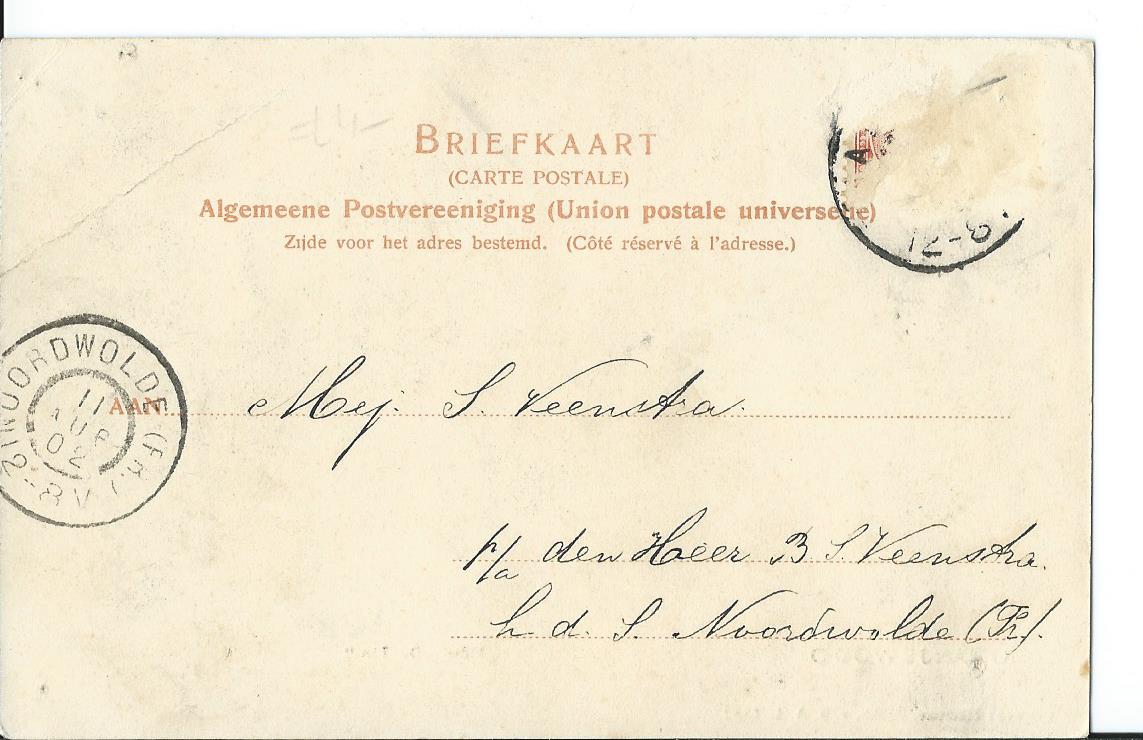 BRIEFKAART
(CARTE POSTALE)
Algemeene Postvereeniging (Union postale universelle)
Zijde voor het adres bestemd. (Côté réservé à l'adresse.)
12-8
NOORDWOLDE (FR.)
11
AUG
02
8V
AAN Mej. S. Veenstra.
p/a den Heer B S. Veenstra.
h. d. S. Noordwolde (Fr).